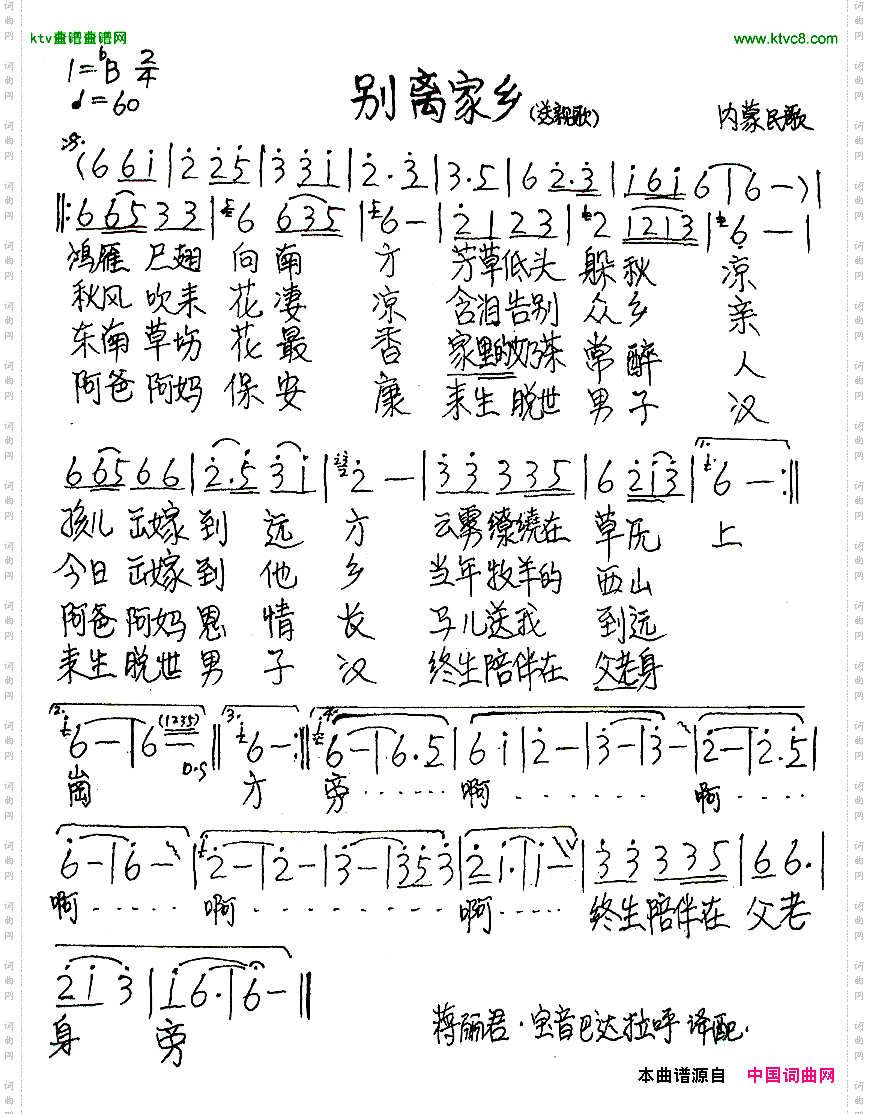 ktv曲谱曲谱网
www.ktvc8.com
1=bB 2/4
♩=60
别离家乡(送亲歌)
内蒙民歌
(6 6 i | 2 2 5 | 3 3 i | 2 · 3 | 3 · 5 | 6 2 · 3 | i 6 i 6 | 6 — ) |
||: 6 6 5 3 3 | 6 6 3 5 | 6 — | 2 1 2 3 | 2 1 2 1 3 | 6 — |
鸿雁 尺翅 向南 方 芳草低头 躲秋 凉
秋风 吹来 花凄 凉 含泪告别 众乡 亲
东南 草场 花最 香 家里的奶茶 常醉 人
阿爸 阿妈 保安 康 来生脱世 男子 汉
6 6 5 6 6 | 2 · 5 3 i | 2 — | 3 3 3 3 5 | 6 2 i 3 | 1. 6 — :||
孩儿 出嫁 到 远 方 云雾缭绕在 草原 上
今日 出嫁 到 他 乡 当年牧羊的 西山
阿爸 阿妈 恩 情 长 马儿送我 到远
来生 脱世 男 子 汉 终生陪伴在 父老身
2. 6 — | 6 (1235) || 3. 6 — :|| 4. 6 — | 6 · 5 | 6 i | 2 — | 3 — | 3 — | 2 — | 2 · 5 |
D.S
崗 方 旁······ 啊 ········ 啊 ····
6 — | 6 — | 2 — | 2 — | 3 — | 3 5 3 | 2 i · | i — | 3 3 3 3 5 | 6 6 · |
啊 ······ 啊 ········ 啊 ····· 终生陪伴在 父老
2 i 3 | i 6 · | 6 — ||
身 旁
蒋丽君·宝音巴达拉呼 译配.
本曲谱源自 中国词曲网
词曲网